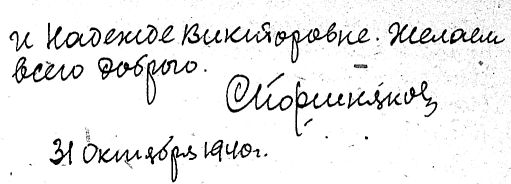 и Надежде Викторовне. Желаем
всего доброго.
31 октября 1940г.